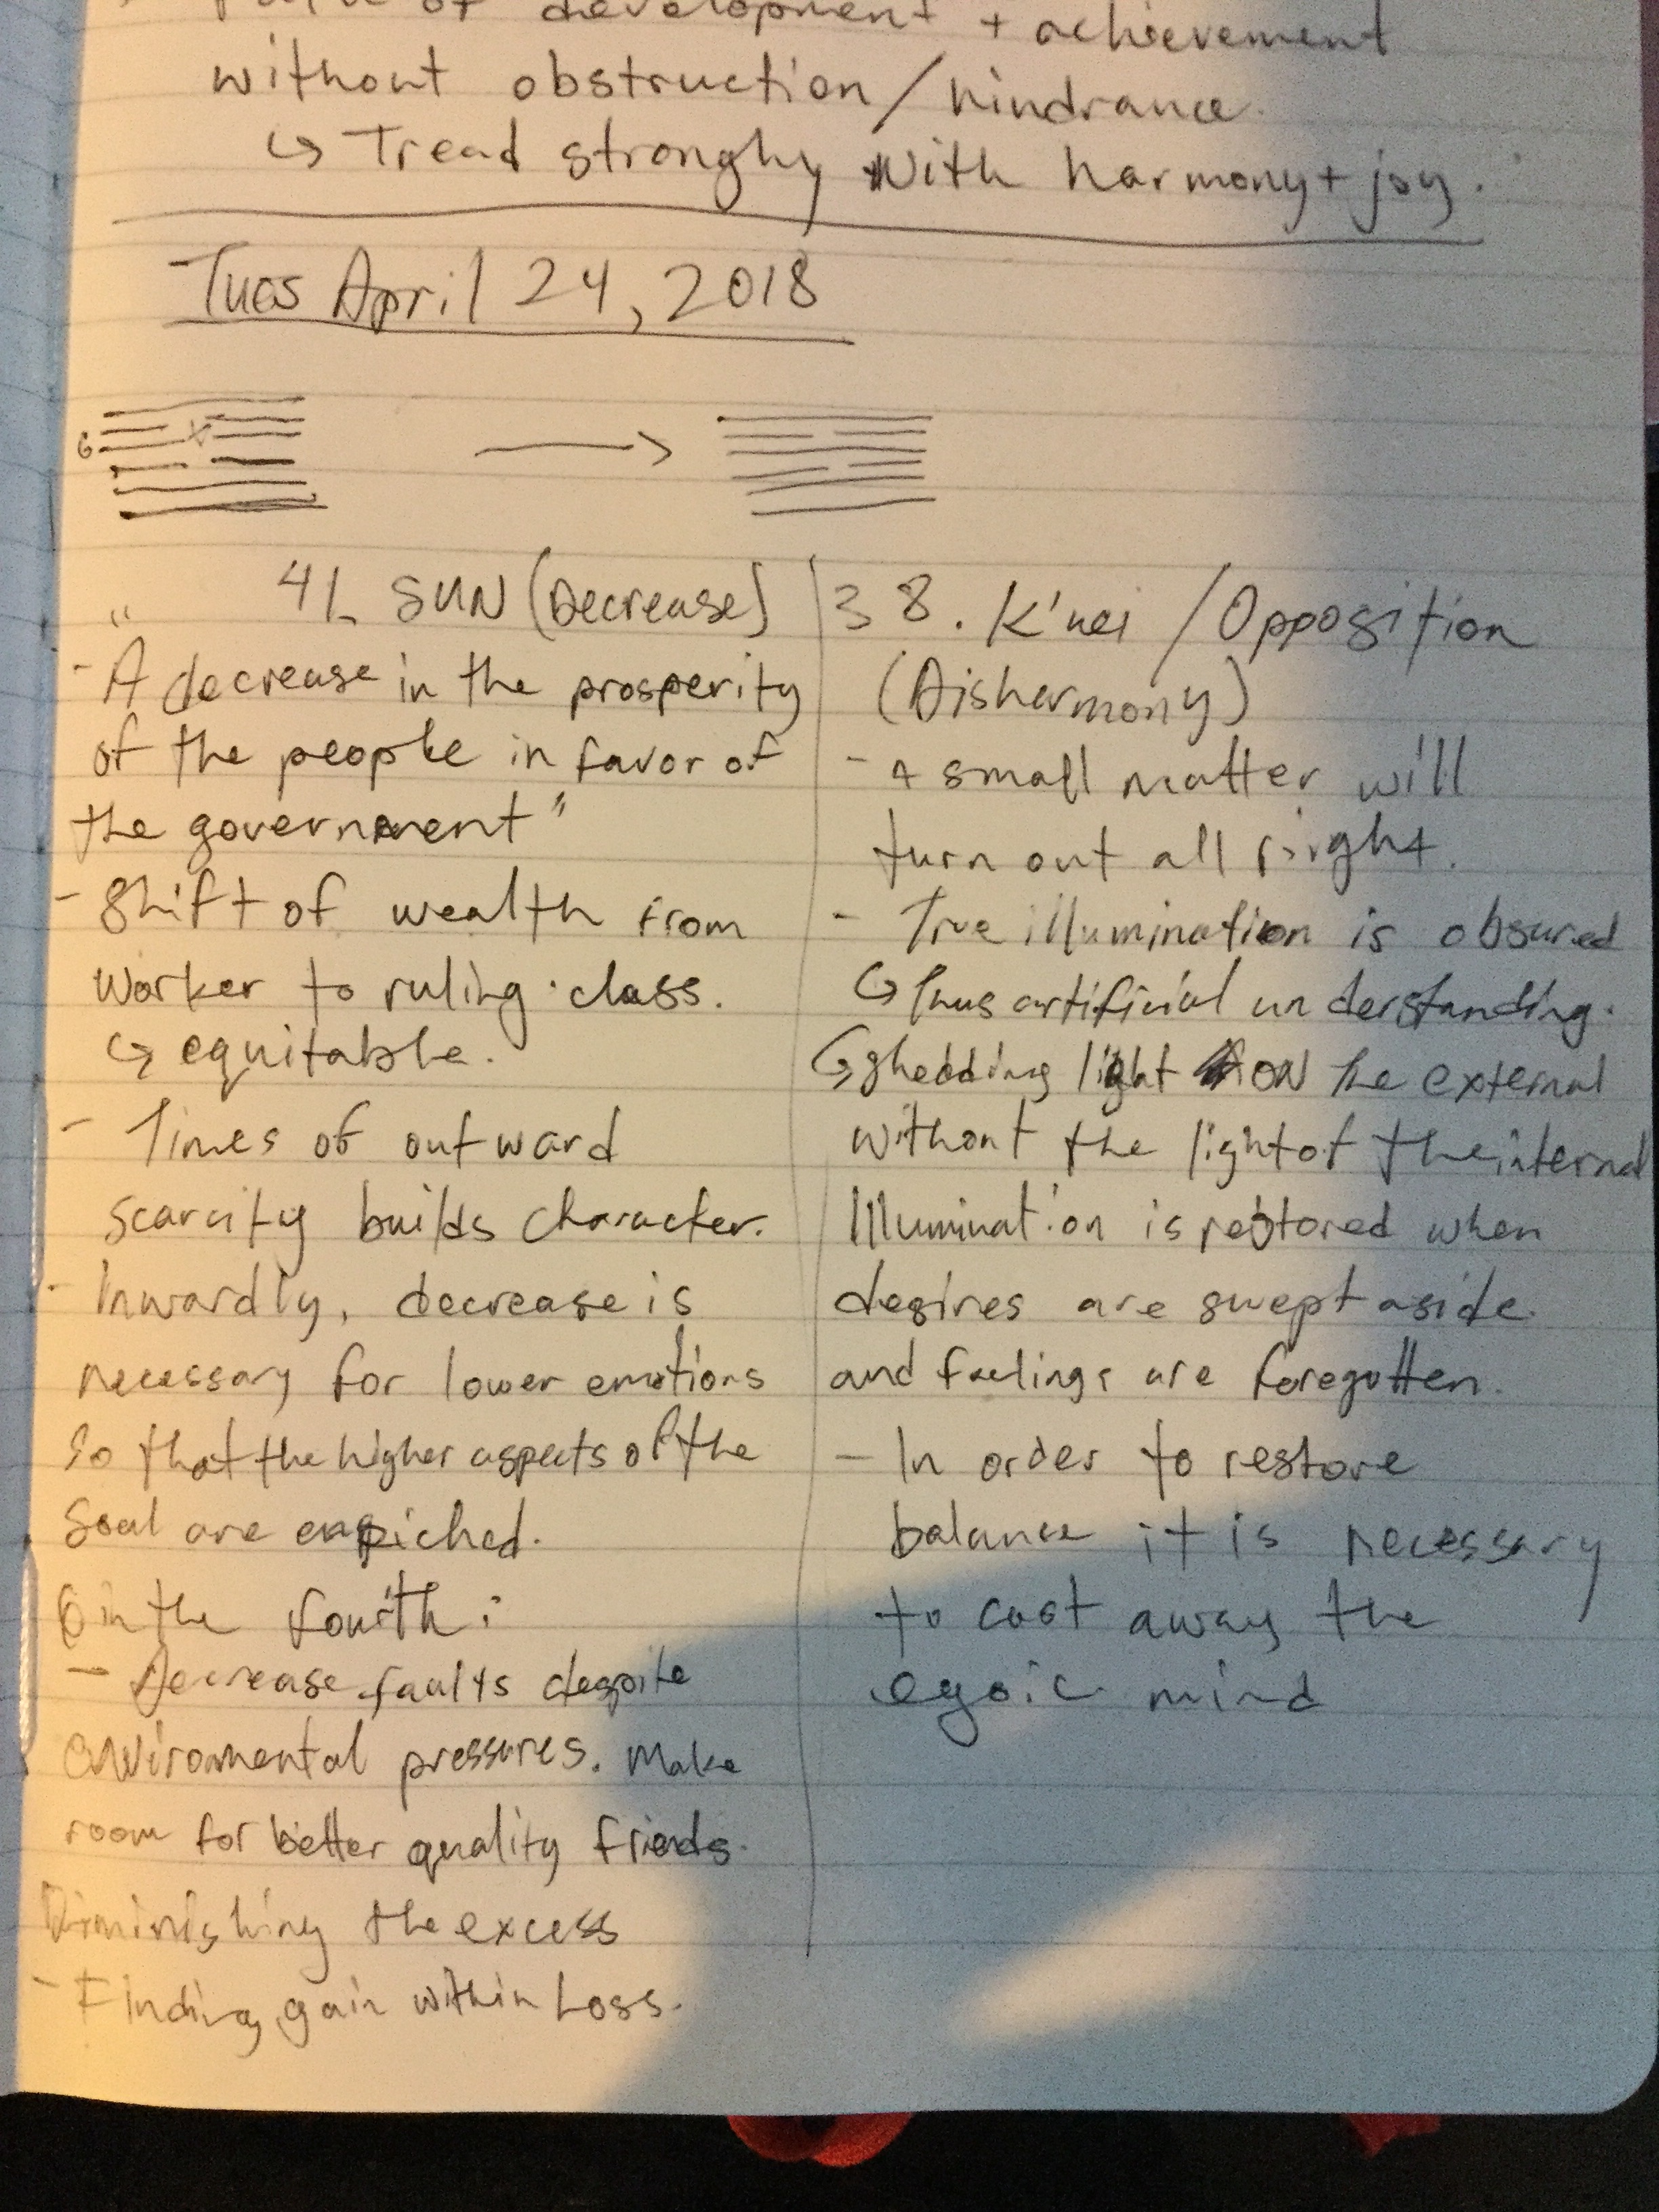 of development + achievement
without obstruction/hindrance.
↳ Tread strongly with harmony + joy.
Tues April 24, 2018
6 x
→
41. SUN (Decrease)
"
- A decrease in the prosperity
of the people in favor of
the government"
- Shift of wealth from
worker to ruling class.
↳ equitable.
- Times of outward
scarcity builds character.
- Inwardly, decrease is
necessary for lower emotions
so that the higher aspects of the
soul are enriched.
6 in the fourth:
- Decrease faults despite
enviromental pressures. Make
room for better quality friends.
Diminishing the excess
- Finding gain within Loss.
38. K'uei / Opposition
(Disharmony)
- A small matter will
turn out all right.
- True illumination is obsured
↳ Thus artificial understanding.
↳ shedding light ON the external
without the light of the internal
Illumination is restored when
desires are swept aside.
and feelings are foregotten.
- In order to restore
balance it is necessary
to cast away the
egoic mind